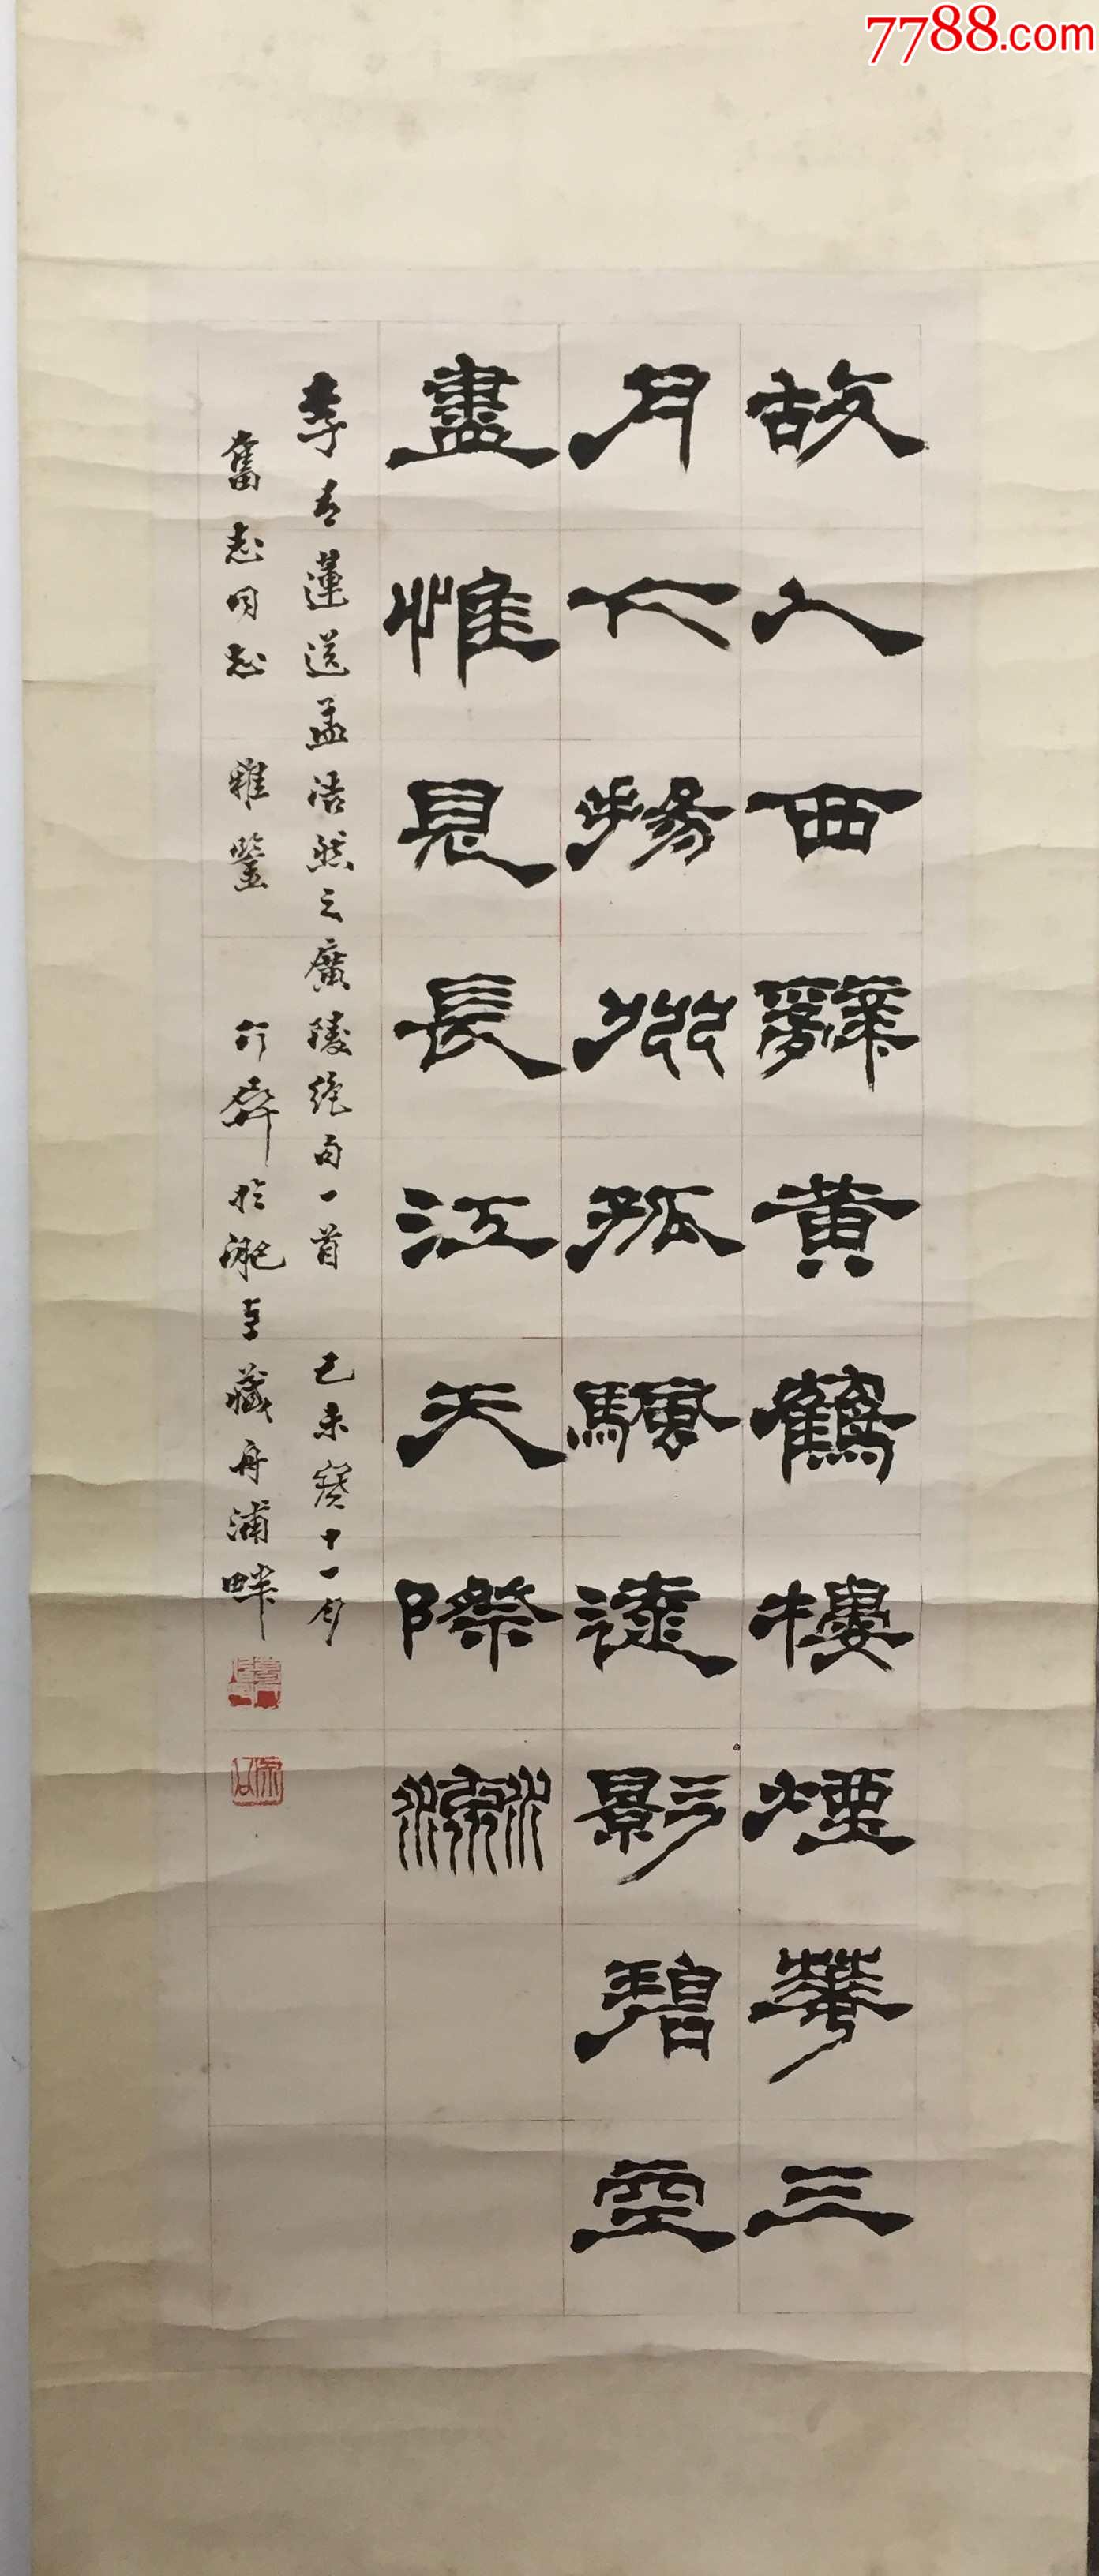 7788.com
故人西辭黄鶴樓煙華三
月下揚州孤颿遠影碧空
盡惟見長江天際流
李青蓮送孟浩然之廣陵絕句一首 己未 十一月
奮志同志 雅鑒 介屏於淝上藏舟浦畔